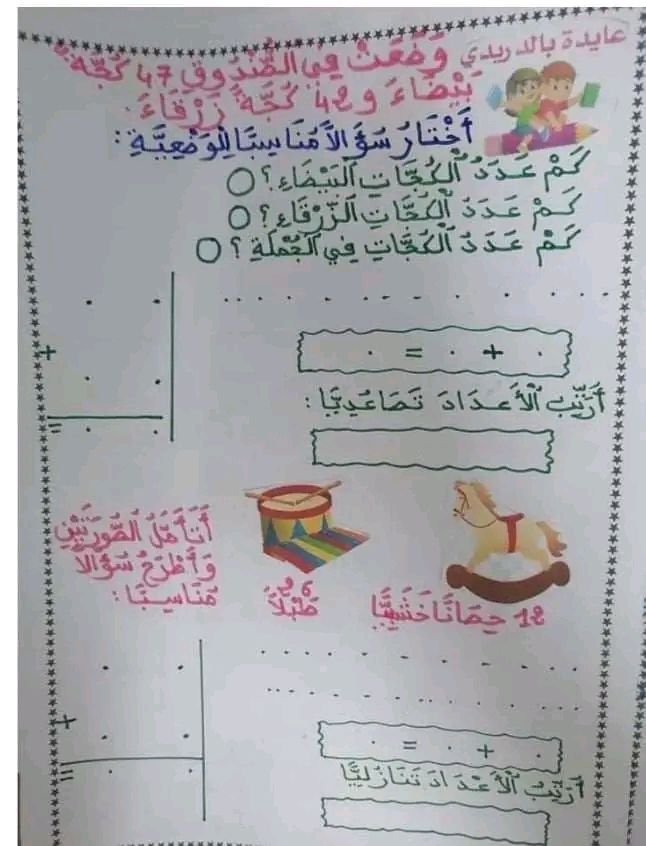 عايدة بالدريدي
وَضَعَتْ فِي الصُّنْدُوقِ 47 كُجَّةً
بَيْضَاءَ وَ 42 كُجَّةً زَرْقَاءَ.
أَخْتَارُ سُؤَالاً مُنَاسِبًا لِلْوَضْعِيَّةِ:
كَمْ عَدَدُ ٱلْكُجَّاتِ ٱلْبَيْضَاءِ؟
كَمْ عَدَدُ ٱلْكُجَّاتِ ٱلزَّرْقَاءِ؟
كَمْ عَدَدُ ٱلْكُجَّاتِ فِي ٱلْجُمْلَةِ؟
+
=
. + . = .
أُرَتِّبُ ٱلْأَعْدَادَ تَصَاعُدِيًّا:
أَتَأَمَّلُ الصُّورَتَيْنِ
وَأَطْرَحُ سُؤَالاً
مُنَاسِبًا:
12 حِصَانًا خَشَبِيًّا
طَبْلاً
+
=
. + . = .
أُرَتِّبُ ٱلْأَعْدَادَ تَنَازُلِيًّا